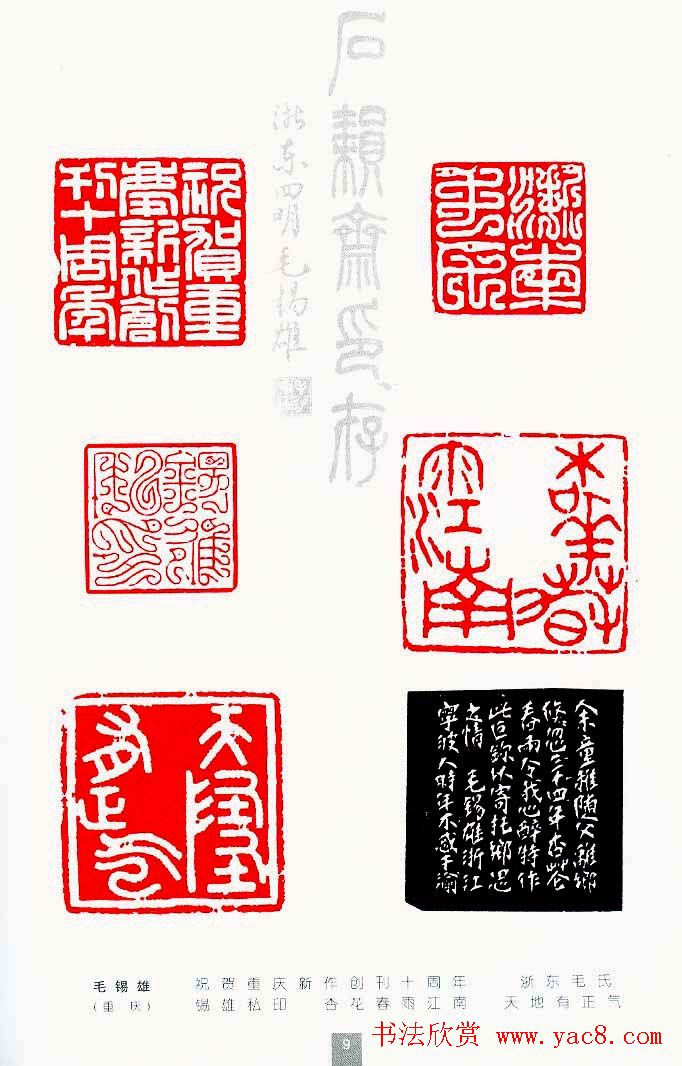 石
齋印存
浙东四明毛锡雄
祝賀重
慶新作創
刊十周年
浙東
毛氏
錫雄
私印
杏華春
雨江南
天地
有正气
余童稚随父離鄉
倏忽三十四年杏花
春雨令我心醉特作
此巨鉨以寄托鄉思
之情 毛錫雄浙江
寧波人時年不惑于渝
毛锡雄 祝贺重庆新作创刊十周年 浙东毛氏
(重庆) 锡雄私印 杏花春雨江南 天地有正气
9
书法欣赏 www.yac8.com